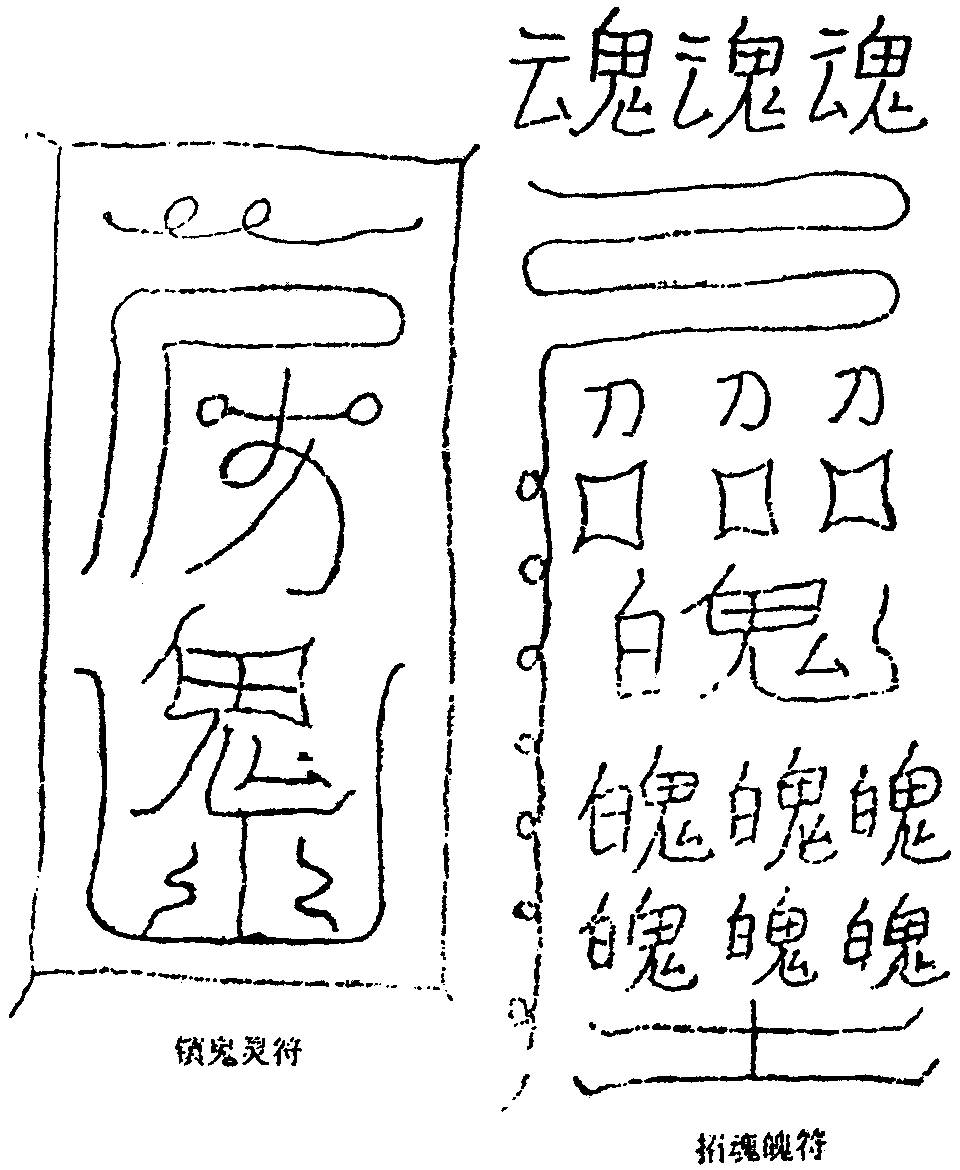 魂魂魂
刀刀刀
口口口
白鬼
魄魄魄
魄魄魄
鬼
锁鬼灵符
魂魄符